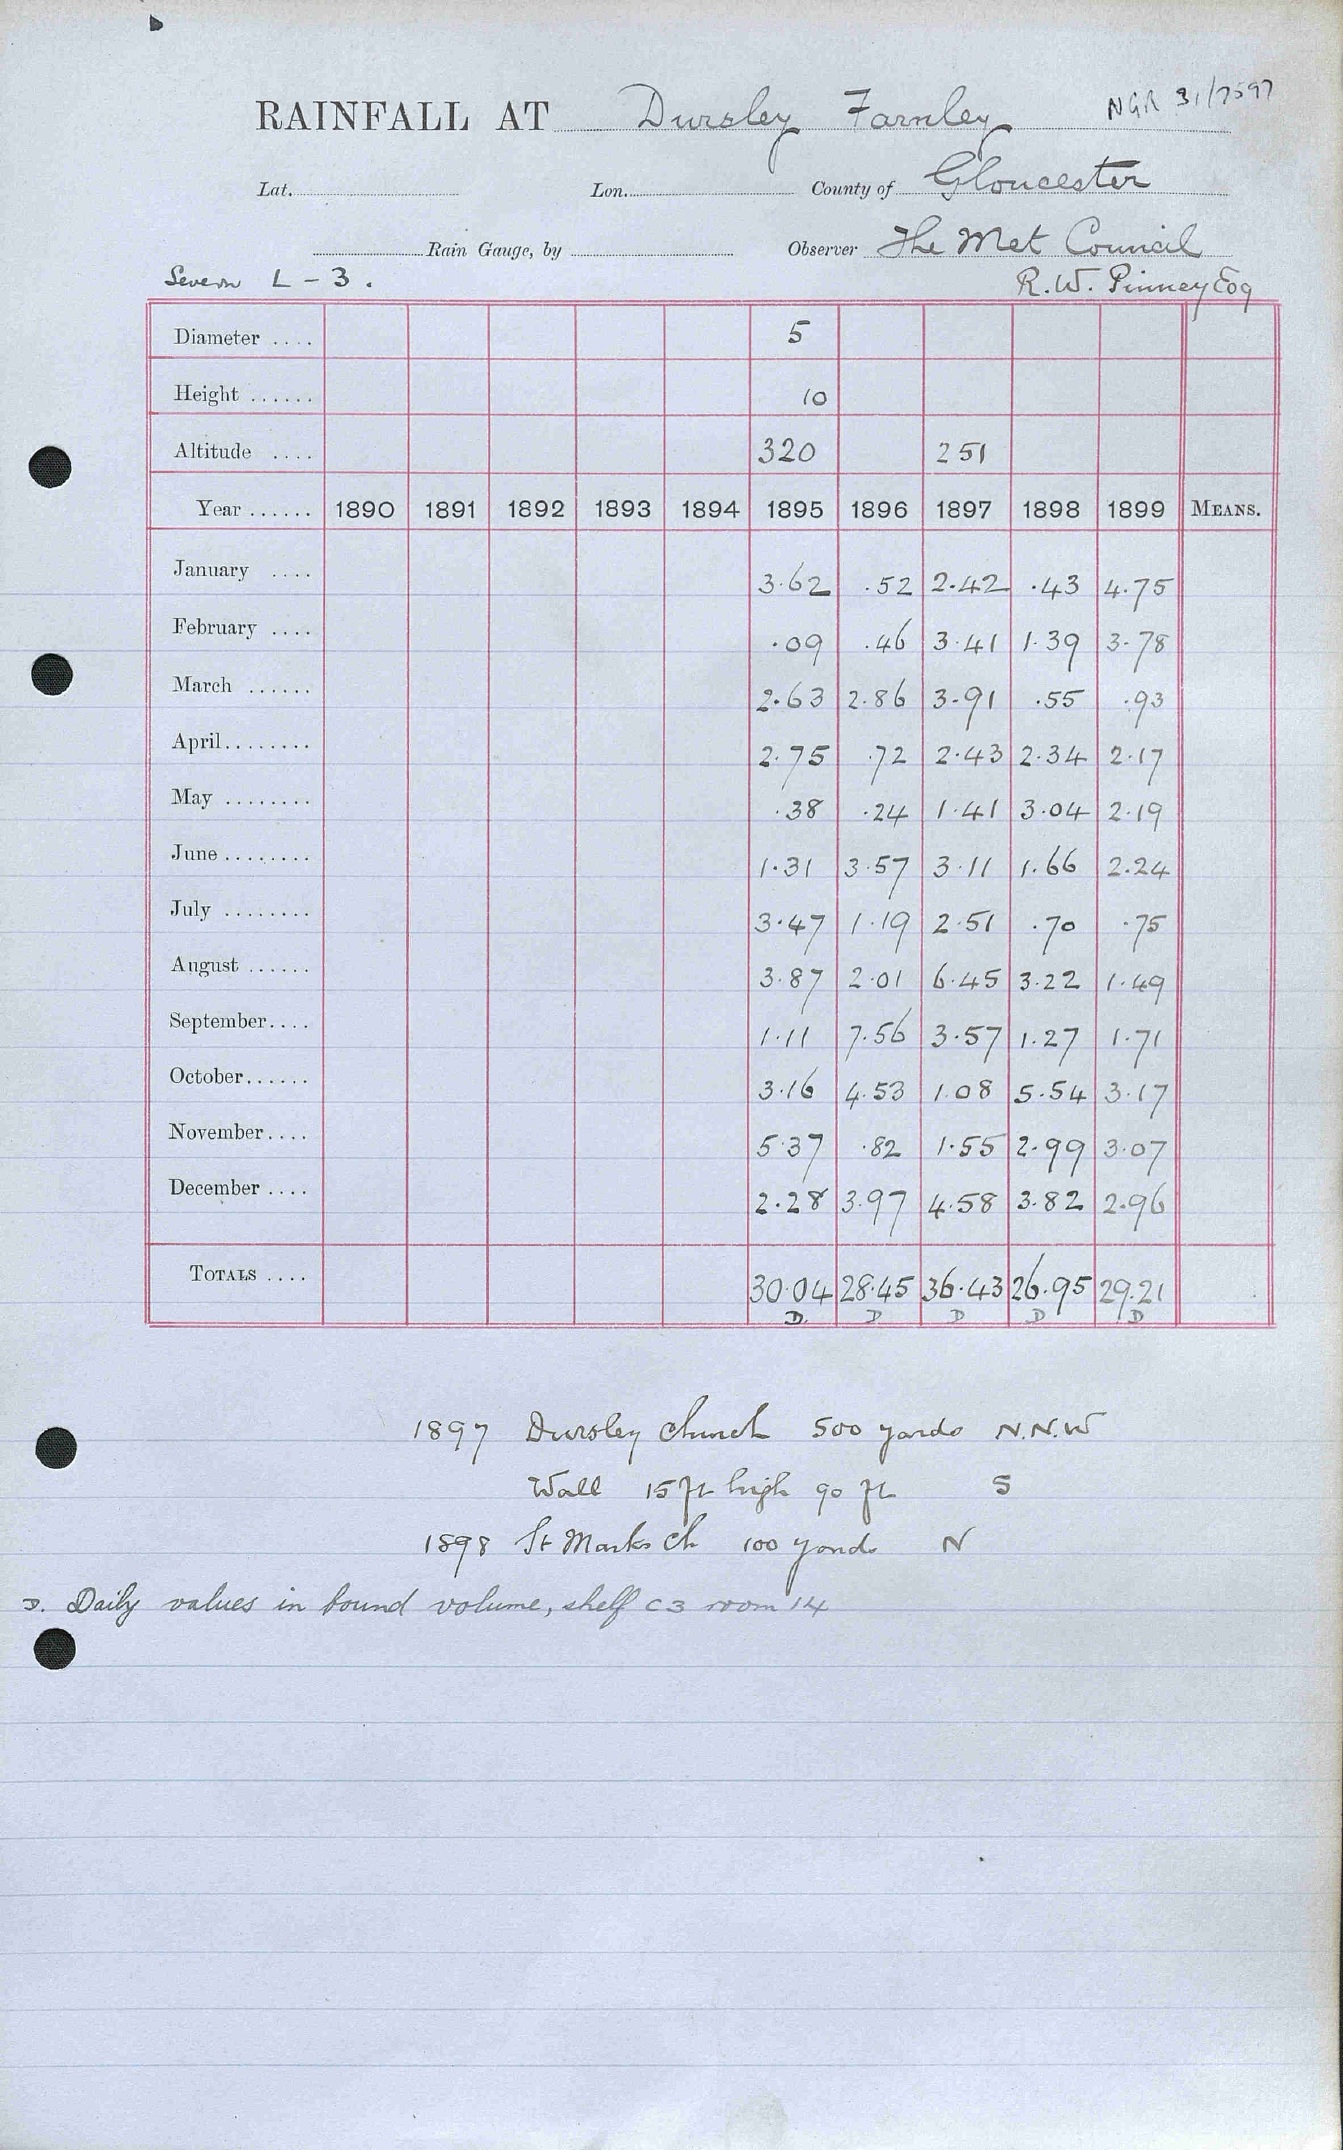 RAINFALL AT Dursley Farnley NGR 31/7597
Lat. Lon. County of Gloucester
Rain Gauge, by Observer The Met Council
Severn L - 3. R. W. Pinney Esq
Diameter .... 5
Height ...... 10
Altitude .... 320 251
Year ...... 1890 1891 1892 1893 1894 1895 1896 1897 1898 1899 MEANS.
January .... 3.62 .52 2.42 .43 4.75
February .... .09 .46 3.41 1.39 3.78
March ...... 2.63 2.86 3.91 .55 .93
April........ 2.75 .72 2.43 2.34 2.17
May ........ .38 .24 1.41 3.04 2.19
June ........ 1.31 3.57 3.11 1.66 2.24
July ........ 3.47 1.19 2.51 .70 .75
August ...... 3.87 2.01 6.45 3.22 1.49
September.... 1.11 7.56 3.57 1.27 1.71
October...... 3.16 4.53 1.08 5.54 3.17
November.... 5.37 .82 1.55 2.99 3.07
December .... 2.28 3.97 4.58 3.82 2.96
TOTALS .... 30.04 28.45 36.43 26.95 29.21
D. D D D D
1897 Dursley Church 500 yards N.N.W
Wall 15 ft high 90 ft S
1898 St Marks Ch 100 yards N
D. Daily values in bound volume, shelf C3 room 14